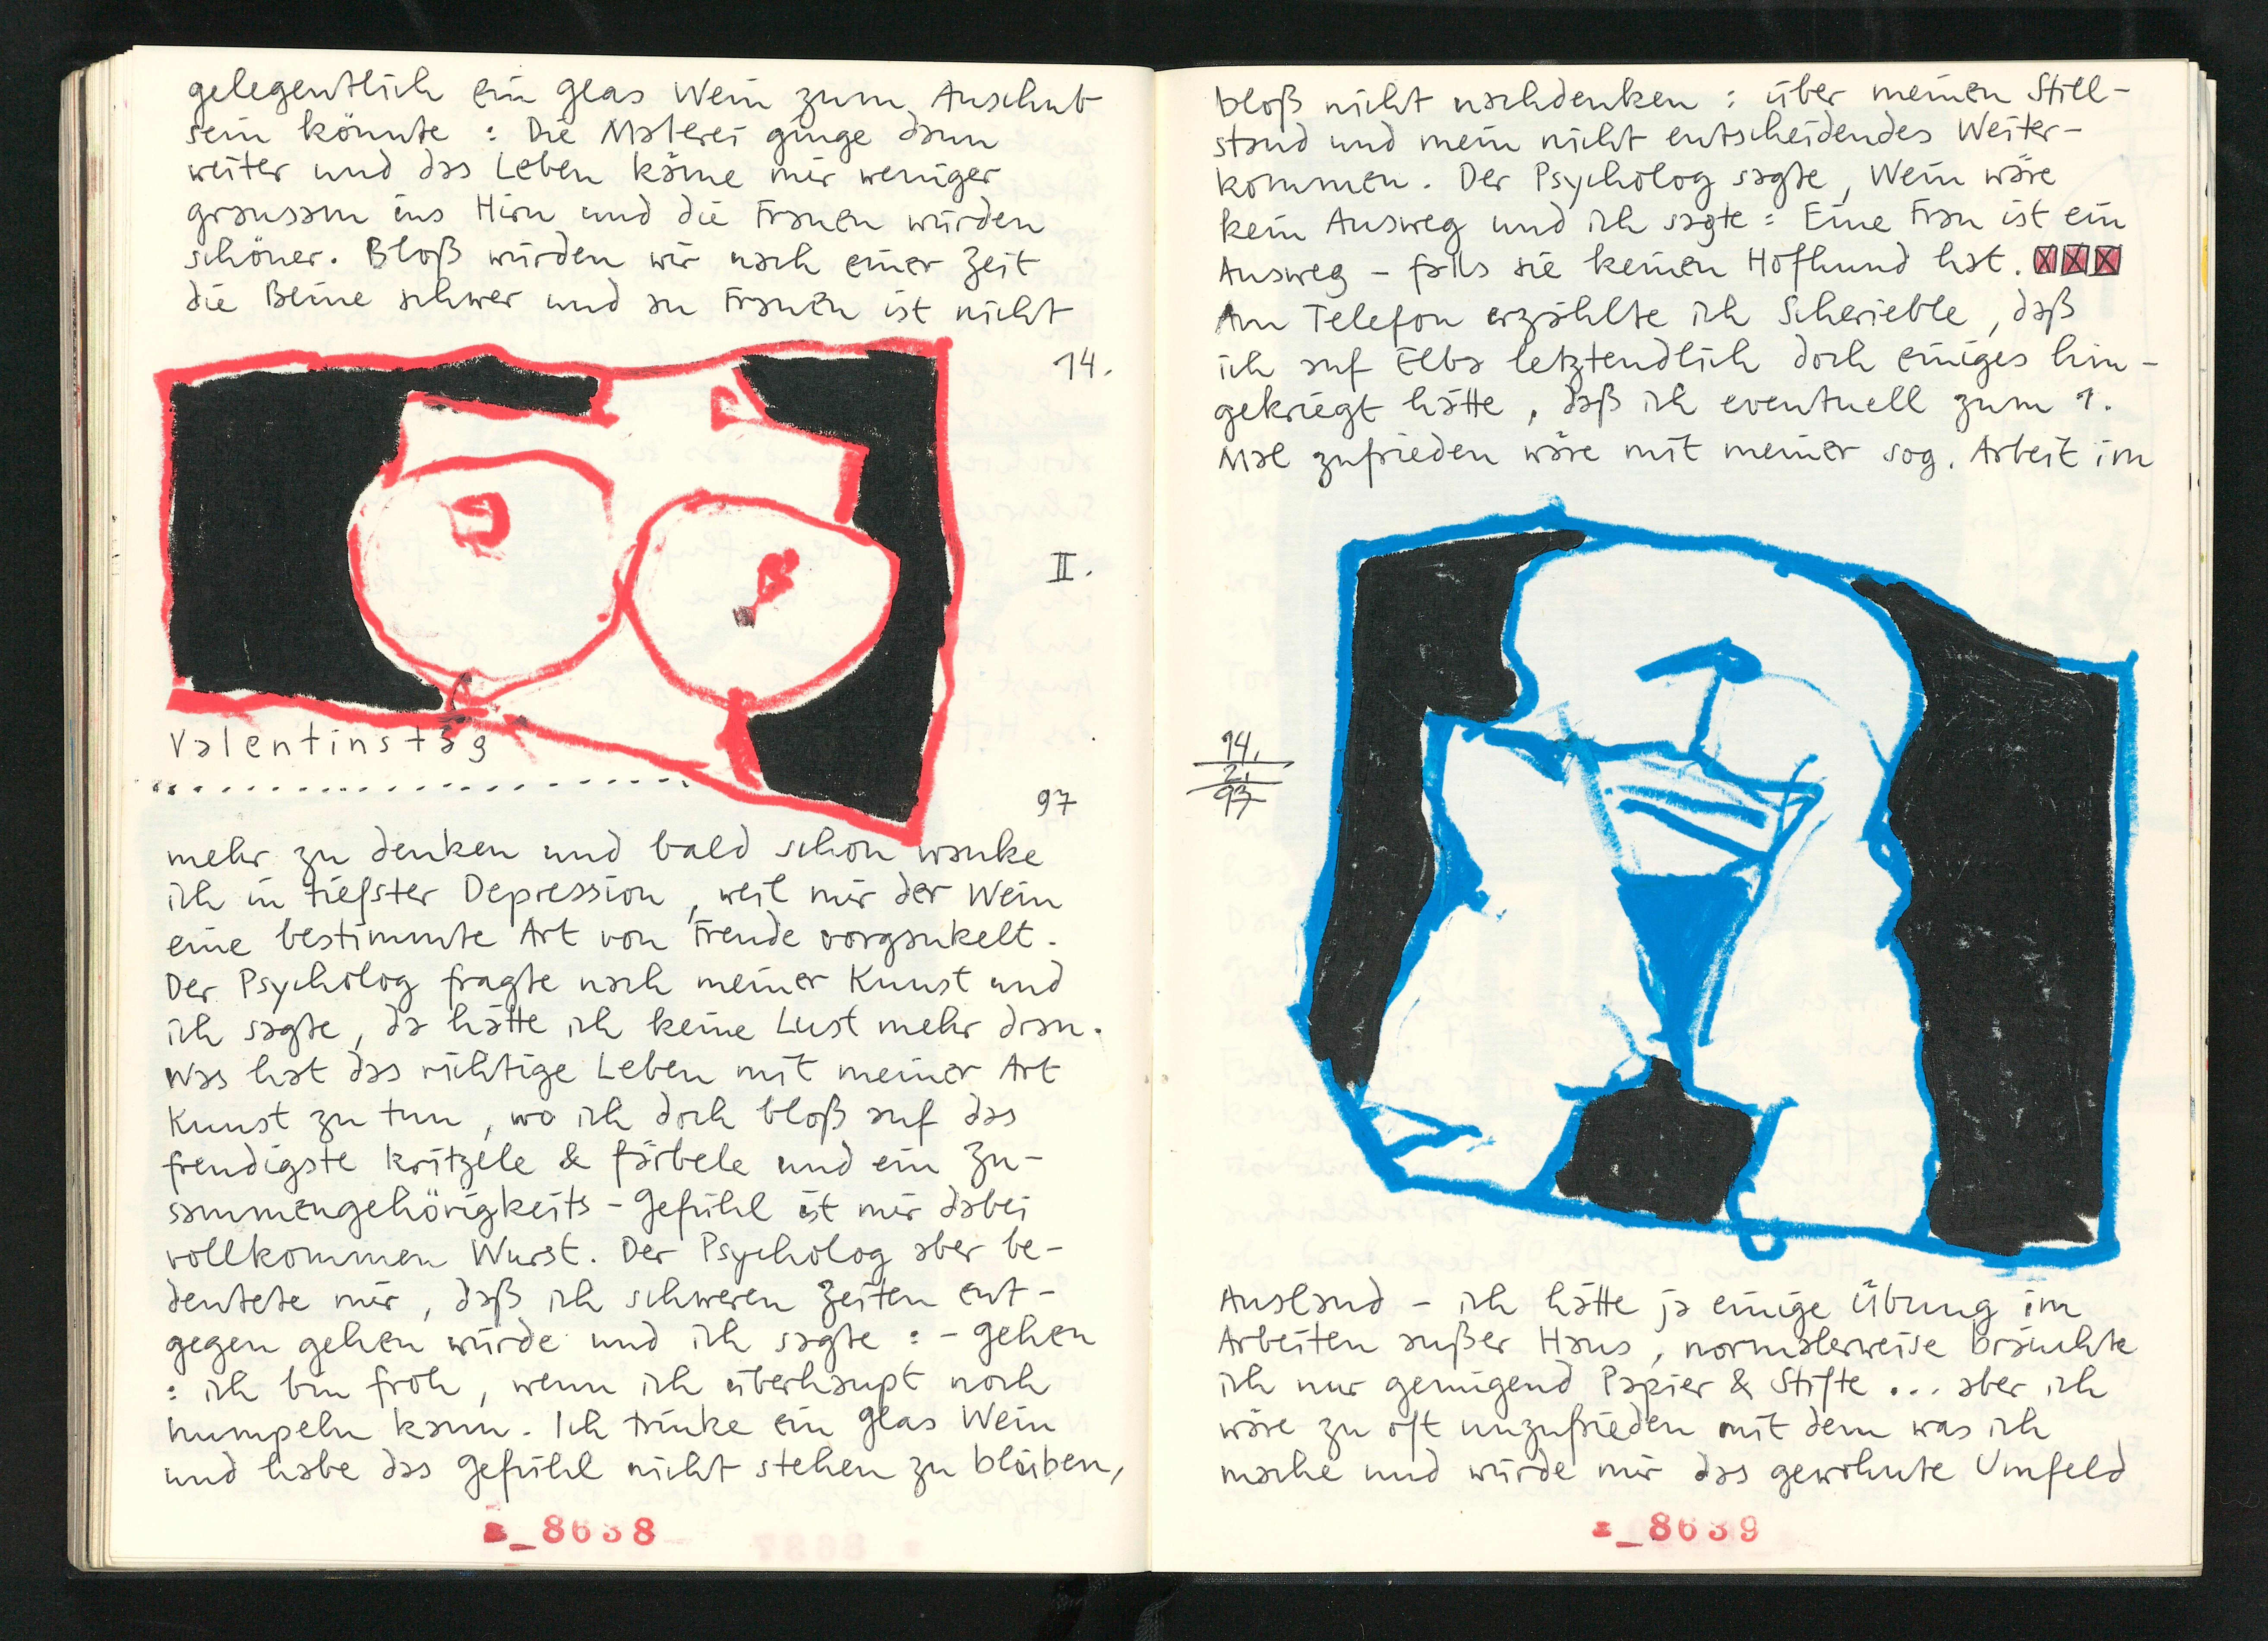 gelegentlich ein Glas Wein zum Anschub
sein könnte : Die Malerei ginge dann
weiter und das Leben käme mir weniger
grausam ins Hirn und die Frauen würden
schöner. Bloß würden wir nach einer Zeit
die Beine schwer und an Frauen ist nicht
14.
II.
Valentinstag
97
mehr zu denken und bald schon wanke
ich in tiefster Depression, weil mir der Wein
eine bestimmte Art von Freude vorgaukelt.
Der Psycholog fragte nach meiner Kunst und
ich sagte, da hätte ich keine Lust mehr dran.
Was hat das richtige Leben mit meiner Art
Kunst zu tun, wo ich doch bloß auf das
freudigste kritzele & färbele und ein Zu-
sammengehörigkeits-Gefühl ist mir dabei
vollkommen Wurst. Der Psycholog aber be-
deutete mir, daß ich schweren Zeiten ent-
gegen gehen würde und ich sagte : - gehen
: ich bin froh, wenn ich überhaupt noch
humpeln kann. Ich trinke ein Glas Wein
und habe das Gefühl nicht stehen zu bleiben,
_8638
bloß nicht nachdenken : über meinen Still-
stand und mein nicht entscheidendes Weiter-
kommen. Der Psycholog sagte, Wein wäre
kein Ausweg und ich sagte : Eine Frau ist ein
Ausweg - falls sie keinen Hofhund hat.
Am Telefon erzählte ich Scherieble, daß
ich auf Elba letztendlich doch einiges hin-
gekriegt hätte, daß ich eventuell zum 1.
Mal zufrieden wäre mit meiner sog. Arbeit im
14.
2.
97
Ausland - ich hätte ja einige Übung im
Arbeiten außer Haus, normalerweise bräuchte
ich nur genügend Papier & Stifte ... aber ich
wäre zu oft unzufrieden mit dem was ich
mache und würde mir das gewohnte Umfeld
_8639